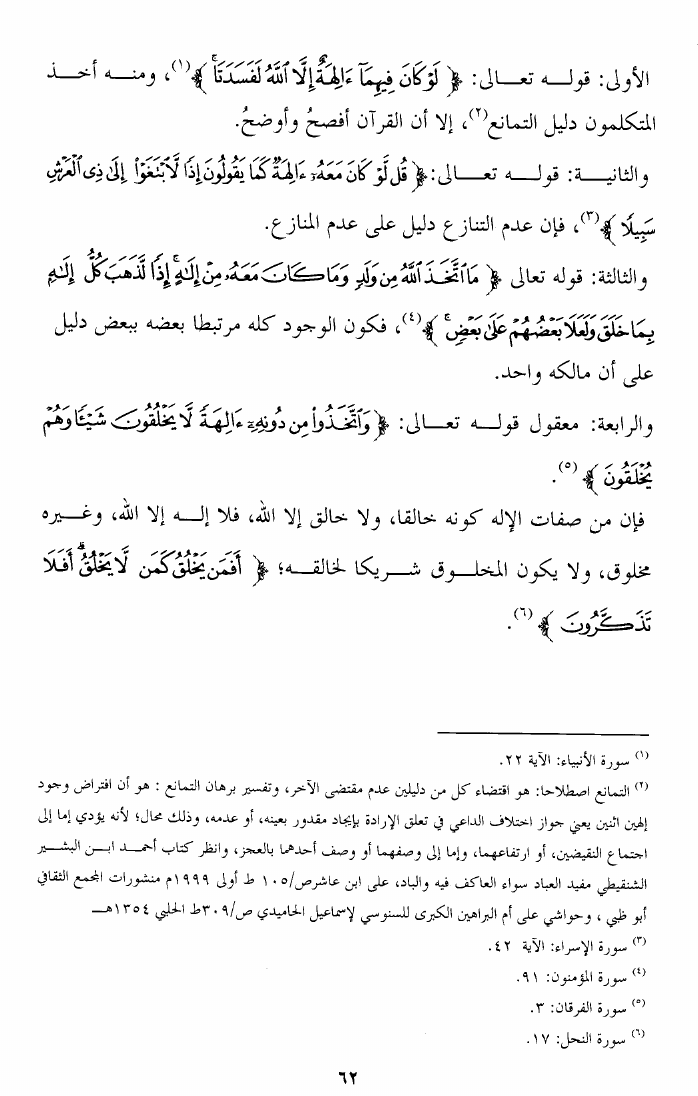 الأولى: قولـه تعـالى: ﴿ لَوْ كَانَ فِيهِمَآ ءَالِهَةٌ إِلَّا ٱللَّهُ لَفَسَدَتَا ۚ ﴾(١)، ومنـه أخـذ
المتكلمون دليل التمانع(٢)، إلا أن القرآن أفصحُ وأوضحُ.
والثانيـة: قولـه تعـالى:﴿ قُل لَّوْ كَانَ مَعَهُۥٓ ءَالِهَةٌ كَمَا يَقُولُونَ إِذًا لَّٱبْتَغَوْا۟ إِلَىٰ ذِى ٱلْعَرْشِ
سَبِيلًا ﴾(٣)، فإن عدم التنازع دليل على عدم المنازع.
والثالثة: قوله تعالى ﴿ مَا ٱتَّخَذَ ٱللَّهُ مِن وَلَدٍ وَمَا كَانَ مَعَهُۥ مِنْ إِلَـٰهٍ ۚ إِذًا لَّذَهَبَ كُلُّ إِلَـٰهٍۭ
بِمَا خَلَقَ وَلَعَلَا بَعْضُهُمْ عَلَىٰ بَعْضٍ ۚ ﴾(٤)، فكون الوجود كله مرتبطا بعضه ببعض دليل
على أن مالكه واحد.
والرابعة: معقول قولـه تعـالى: ﴿ وَٱتَّخَذُوا۟ مِن دُونِهِۦٓ ءَالِهَةً لَّا يَخْلُقُونَ شَيْـًٔا وَهُمْ
يُخْلَقُونَ ﴾(٥).
فإن من صفات الإله كونه خالقا، ولا خالق إلا الله، فلا إلـه إلا الله، وغـيره
مخلوق، ولا يكون المخلـوق شـريكا لخالقـه؛ ﴿ أَفَمَن يَخْلُقُ كَمَن لَّا يَخْلُقُ ۗ أَفَلَا
تَذَكَّرُونَ ﴾(٦).
(١) سورة الأنبياء: الآية ٢٢.
(٢) التمانع اصطلاحا: هو اقتضاء كل من دليلين عدم مقتضى الآخر، وتفسير برهان التمانع : هو أن افتراض وجود
إلهين اثنين يعني جواز اختلاف الداعي في تعلق الإرادة بإيجاد مقدور بعينه، أو عدمه، وذلك محال؛ لأنه يؤدي إما إلى
اجتماع النقيضين، أو ارتفاعهما، وإما إلى وصفهما أو وصف أحدهما بالعجز، وانظر كتاب أحمـد ابـن البشـير
الشنقيطي مفيد العباد سواء العاكف فيه والباد، على ابن عاشرص/١٠٥ ط أولى ١٩٩٩م منشورات المجمع الثقافي
أبو ظبي ، وحواشي على أم البراهين الكبرى للسنوسي لإسماعيل الحاميدي ص/٣٠٩ط الحلبي ١٣٥٤هـ
(٣) سورة الإسراء: الآية ٤٢.
(٤) سورة المؤمنون: ٩١.
(٥) سورة الفرقان: ٣.
(٦) سورة النحل: ١٧.
٦٢